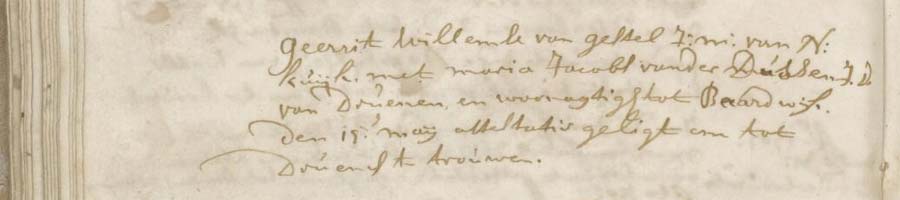 Geerrit Willemse van gestel J: m: van N:
kuijk. met maria Jacobs vander Dussen J. D
van Drúenen, en woonagtigh tot Baardwijk.
den 19: maij attestatie geligt om tot
Drúenen te troúwen.